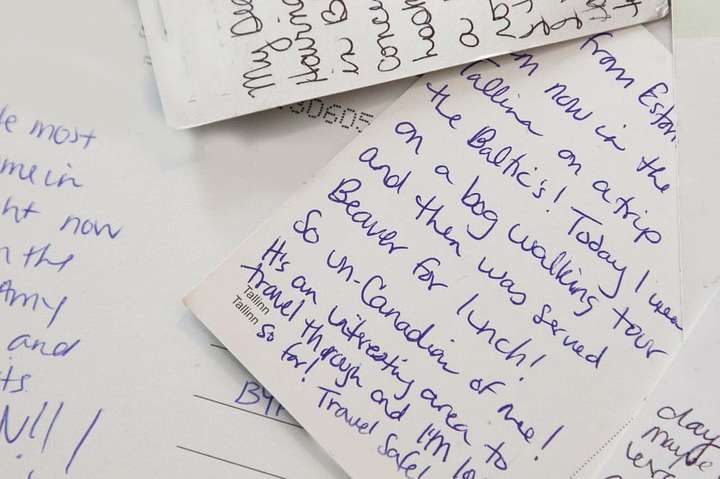 My
Havin
in B
conce
a
30605
le most
me in
ht now
n the
Amy
and
ts
N!!/
from Eston
m now in the
Tallinn on a trip
the Baltic's! Today I wen
on a bog walking tour
and then was served
Beaver for lunch!
So un-Canadian of me!
It's an interesting area to
travel through and I'm lo
so far! Travel Safe!
Tallinn
Tallinn
day
maybe